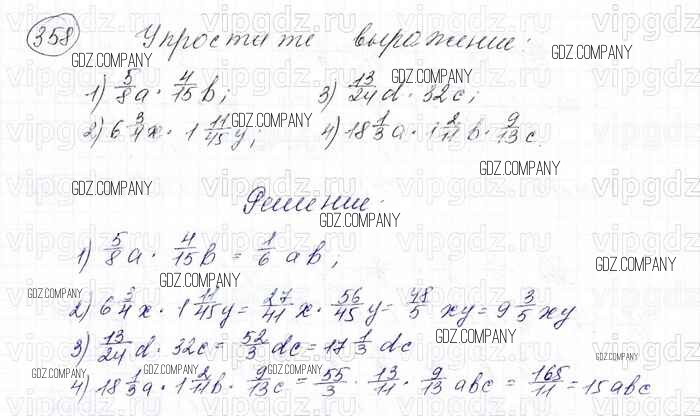 358 Упростите выражение:
1) 5/8 a · 4/15 b; 3) 13/24 d · 32c;
2) 6 3/4 x · 1 11/45 y; 4) 18 1/3 a · 1 2/11 b · 9/13 c.
Решение:
1) 5/8 a · 4/15 b = 1/6 ab;
2) 6 3/4 x · 1 11/45 y = 27/41 x · 56/45 y = 48/5 xy = 9 3/5 xy
3) 13/24 d · 32c = 52/3 dc = 17 1/3 dc
4) 18 1/3 a · 1 2/11 b · 9/13 c = 55/3 · 13/11 · 9/13 abc = 165/11 = 15abc
GDZ.COMPANY
vipgdz.ru